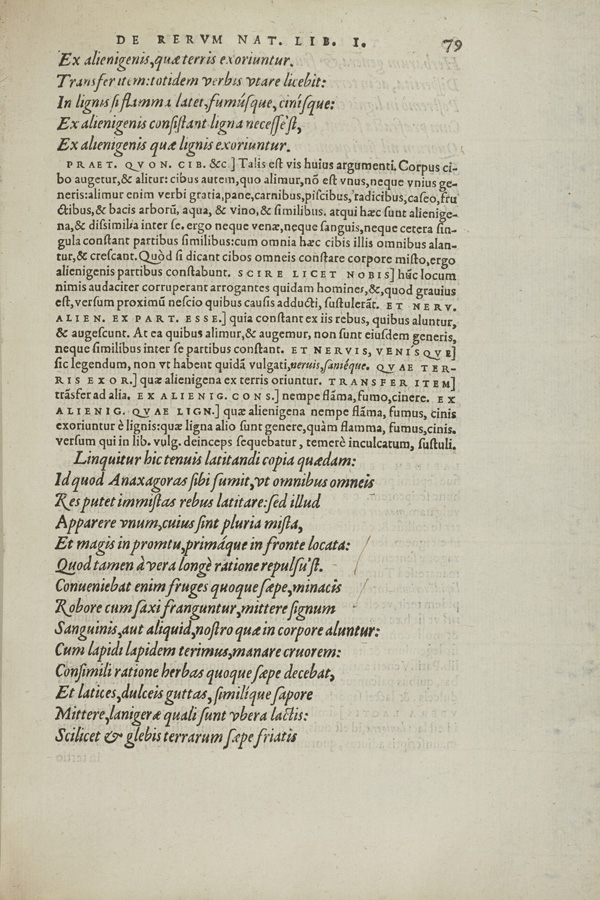 DE RERVM NAT. LIB. I. 79
Ex alienigenis, quæ terris exoriuntur.
Transfer item: totidem verbis vtare licebit:
In lignis si flamma latet, fumúsque, cinísque:
Ex alienigenis consistant ligna necesse'st,
Ex alienigenis quæ lignis exoriuntur.
PRAET. QVON. CIB. &c] Talis est vis huius argumenti. Corpus ci-
bo augetur, & alitur: cibus autem, quo alimur, nō est vnus, neque vnius ge-
neris: alimur enim verbi gratia, pane, carnibus, piscibus, radicibus, caseo, fru
ctibus, & bacis arborū, aqua, & vino, & similibus. atqui hæc sunt alienige-
na, & dissimilia inter se. ergo neque venæ, neque sanguis, neque cetera sin-
gula constant partibus similibus: cum omnia hæc cibis illis omnibus alan-
tur, & crescant. Quòd si dicant cibos omneis constare corpore misto, ergo
alienigenis partibus constabunt. SCIRE LICET NOBIS] hūc locum
nimis audaciter corruperant arrogantes quidam homines, &, quod grauius
est, versum proximū nescio quibus causis adducti, sustulerāt. ET NERV.
ALIEN. EX PART. ESSE.] quia constant ex iis rebus, quibus aluntur,
& augescunt. At ea quibus alimur, & augemur, non sunt eiusdem generis,
neque similibus inter se partibus constant. ET NERVIS, VENÍSQVE]
sic legendum, non vt habent quidā vulgati, neruis, saniéque. QVAE TER-
RIS EXOR.] quæ alienigena ex terris oriuntur. TRANSFER ITEM]
trāsfer ad alia. EX ALIENIG. CONS.] nempe flāma, fumo, cinere. EX
ALIENIG. QVAE LIGN.] quæ alienigena nempe flāma, fumus, cinis
exoriuntur è lignis: quæ ligna alio sunt genere, quàm flamma, fumus, cinis.
versum qui in lib. vulg. deinceps sequebatur, temerè inculcatum, sustuli.
Linquitur hic tenuis latitandi copia quædam:
Id quod Anaxagoras sibi sumit, vt omnibus omneis
Res putet immistas rebus latitare: sed illud
Apparere vnum, cuius sint pluria mista,
Et magis in promtu, primáque in fronte locata:
Quod tamen à vera longè ratione repulsu'st.
Conueniebat enim fruges quoque sæpe, minacis
Robore cum saxi franguntur, mittere signum
Sanguinis, aut aliquid, nostro quæ in corpore aluntur:
Cum lapidi lapidem terimus, manare cruorem:
Consimili ratione herbas quoque sæpe decebat,
Et latices, dulceis guttas, similíque sapore
Mittere, lanigeræ quali sunt vbera lactis:
Scilicet & glebis terrarum sæpe friatis